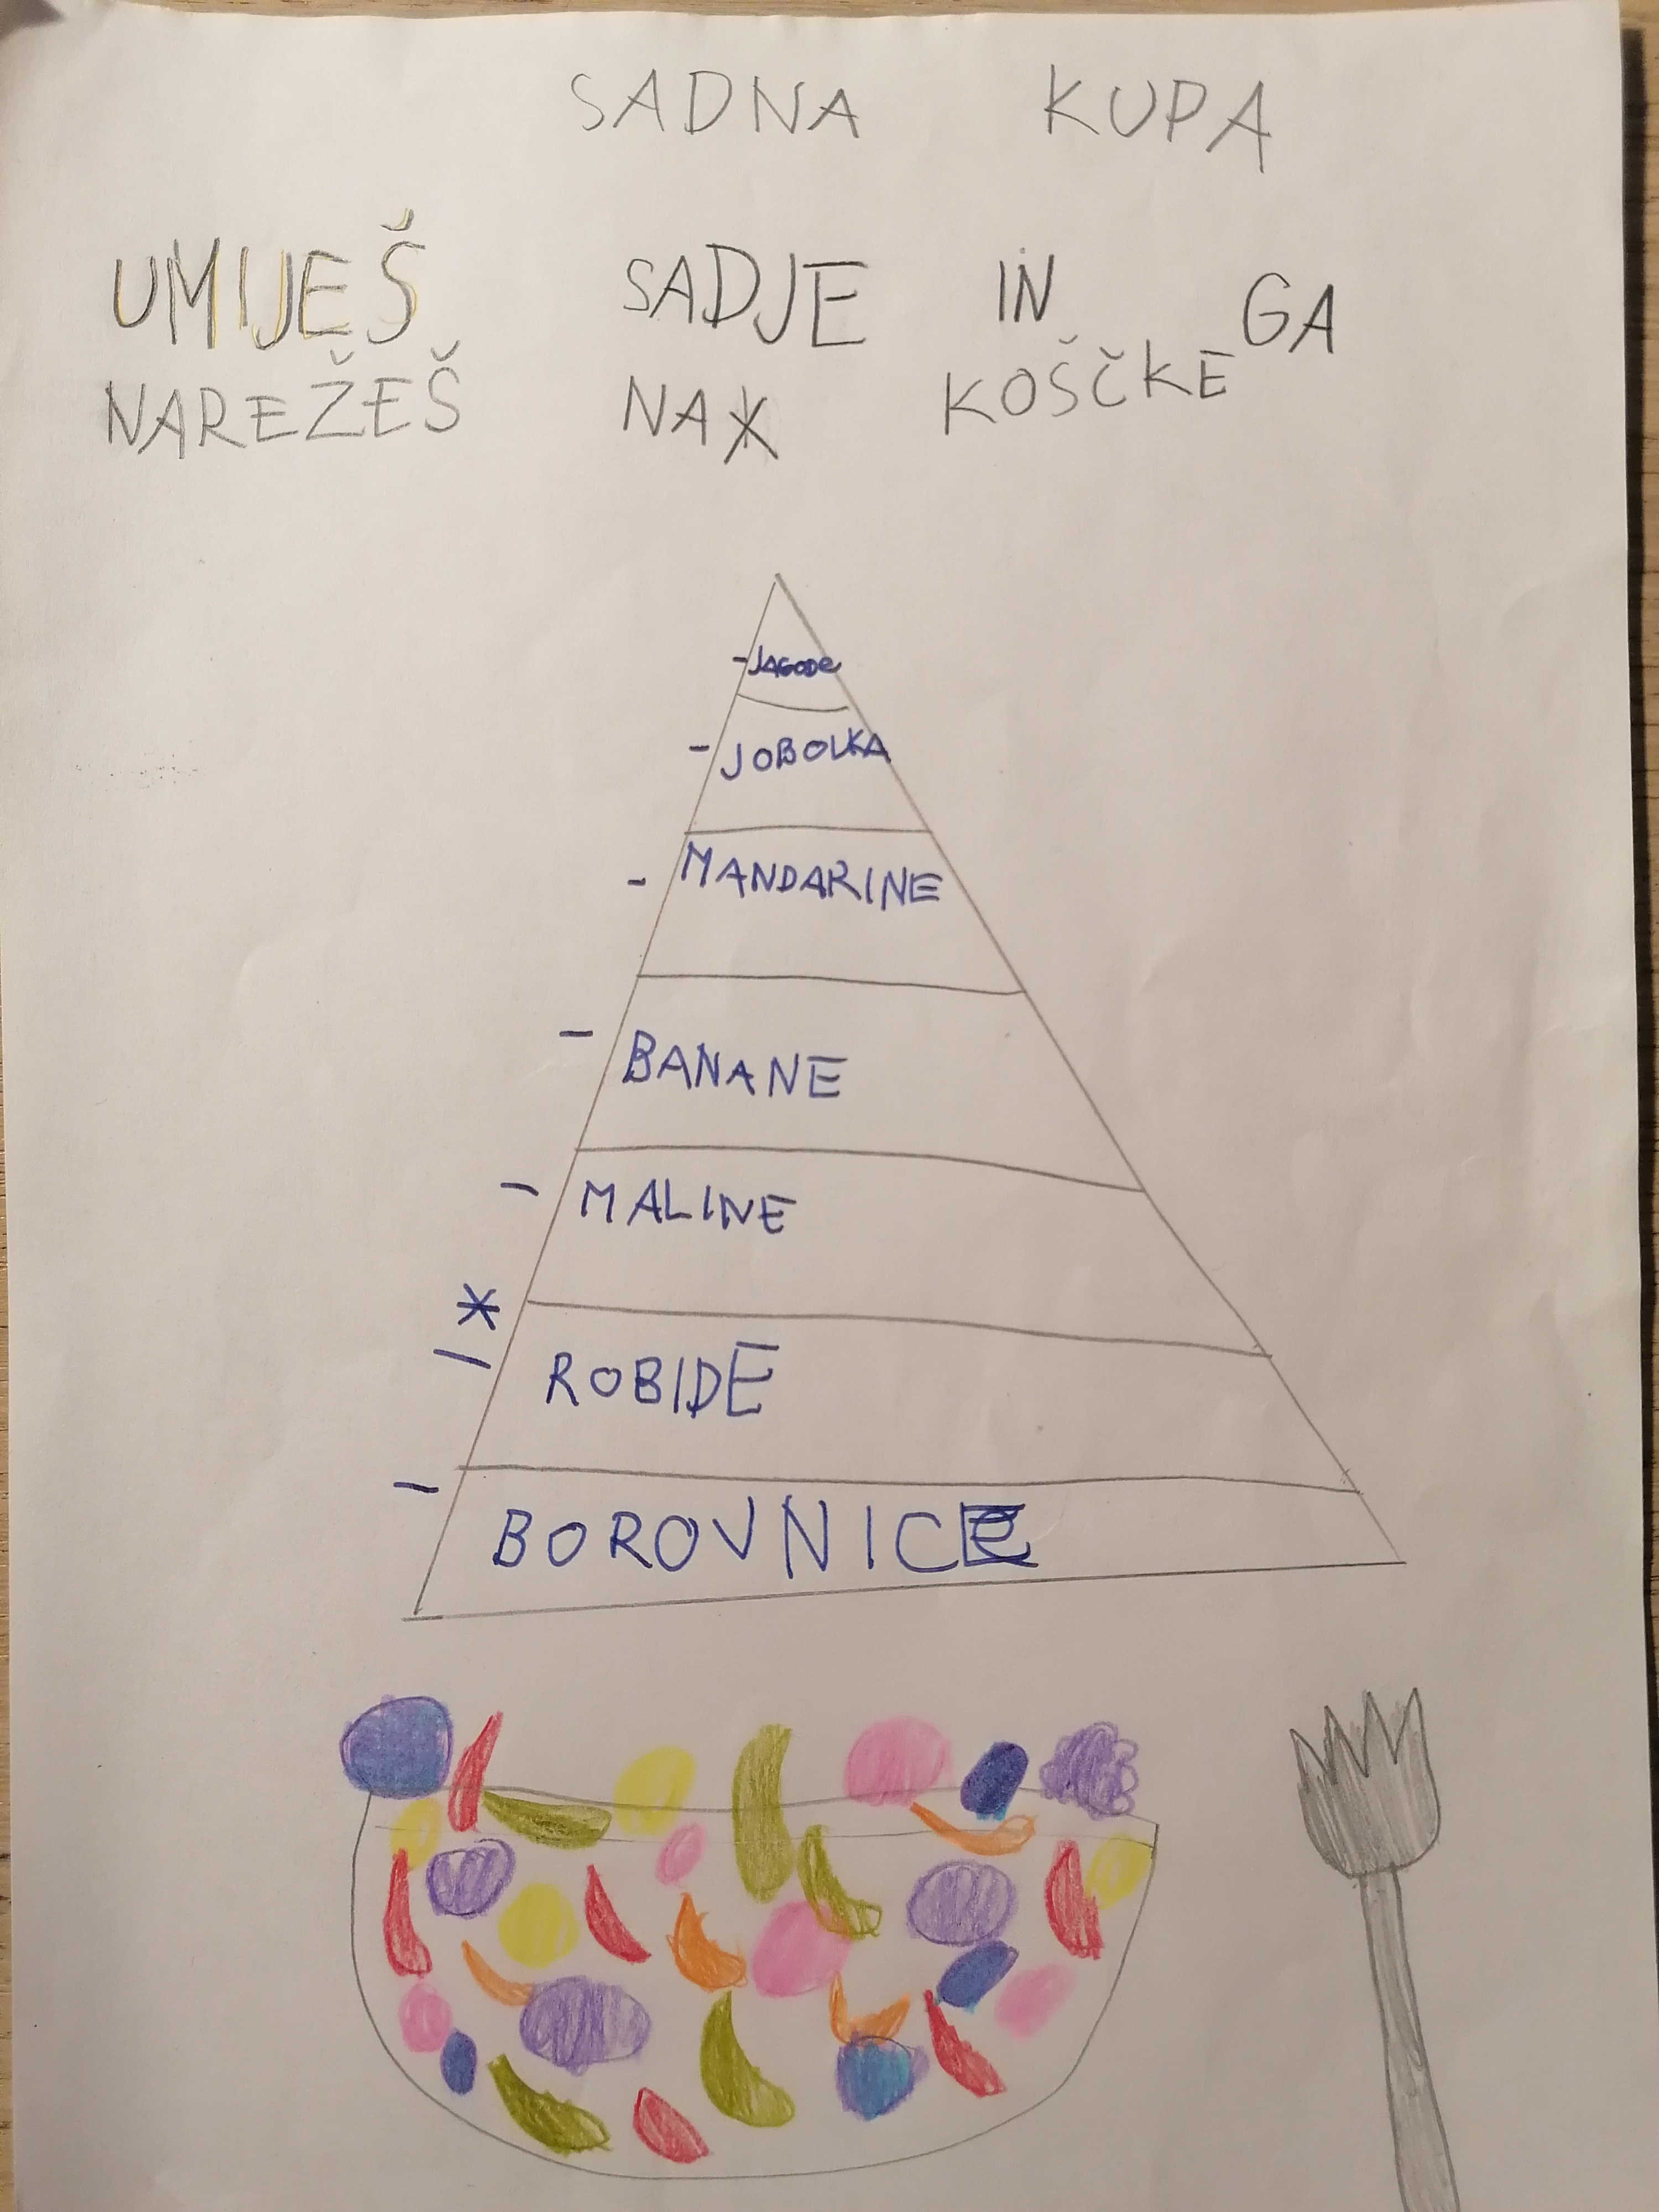 SADNA KUPA
UMIJEŠ SADJE IN GA
NAREŽEŠ NA KOŠČKE
- JAGODE
- JOBOLKA
- MANDARINE
- BANANE
- MALINE
- ROBIDE
- BOROVNICE